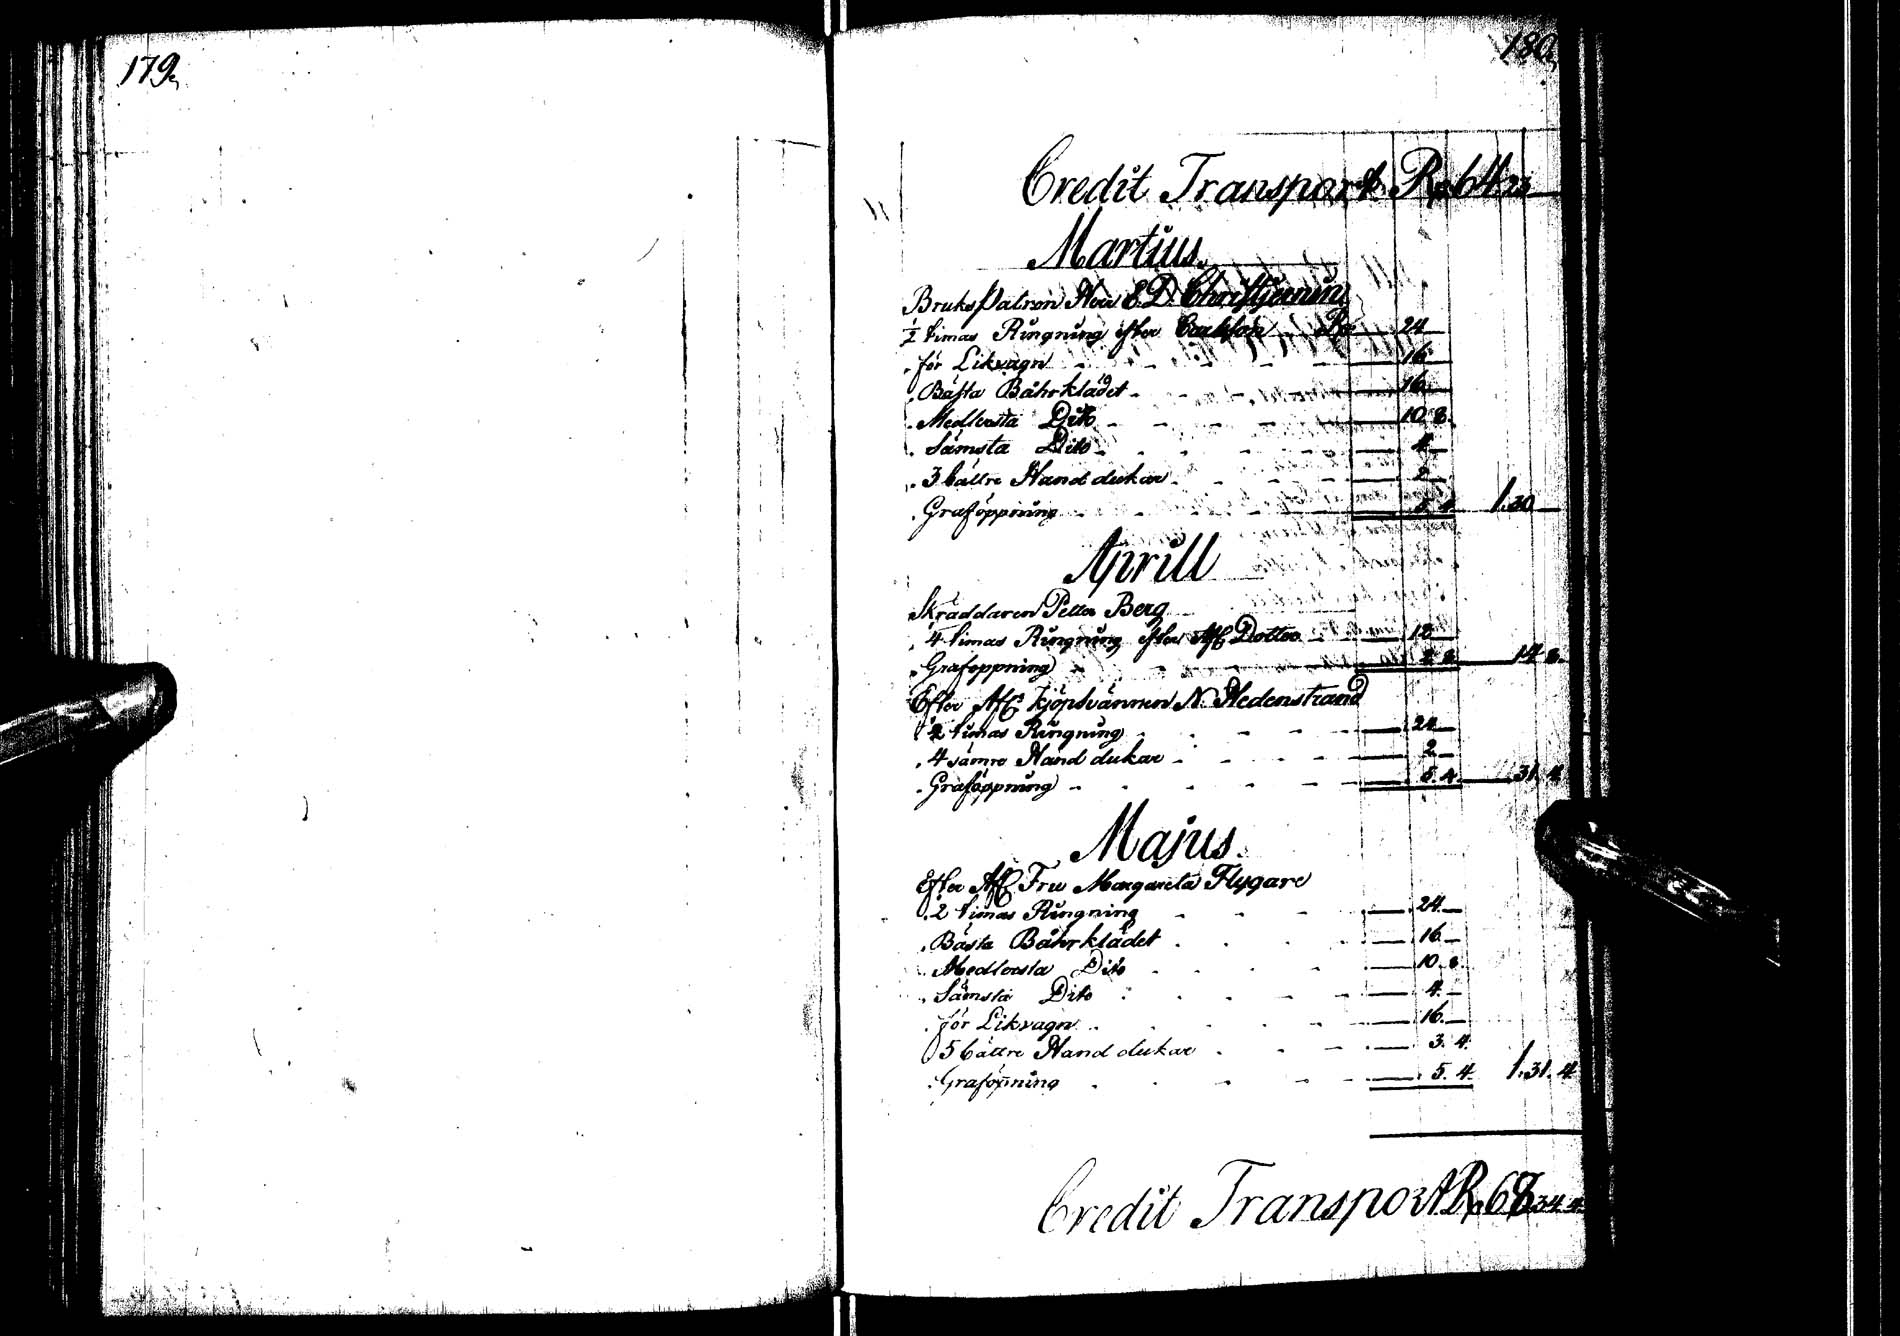 179.
180.
Credit Transport Rd 64.23 —
Martius.
Bruks Patron Herr E. D. Christjernin
1/2 timas Ringning efter Rd — 24 —
för Likvagn — 16 —
Bästa Båhrklädet — 16 —
Medlersta Dito — 10. 8.
Sämsta Dito — 4 —
3 bättre Hand dukar — 2 —
Graföppning — 5. 4 1.30 —
Aprill
Skräddaren Petter Berg
1/4 timas Ringning efter Afl. Dotter — 12 —
Graföppning — 2. 8. — 14. 8.
Efter Afl. Kjöpsvännen N. Hedenstrand
1/2 timas Ringning — 24 —
4 sämre Hand dukar — 2 —
Graföppning — 5. 4. — 31. 4
Majus.
Efter Afl. Fru Margareta Flygare
1/2 timas Ringning — 24. —
Bästa Båhrklädet — 16 —
Medlersta Dito — 10. 8
Sämsta Dito — 4. —
för Likvagn — 16. —
5 bättre Hand dukar — 3. 4.
Graföpning — 5. 4. 1.31. 4
Credit Transport Rd 68.34 4.